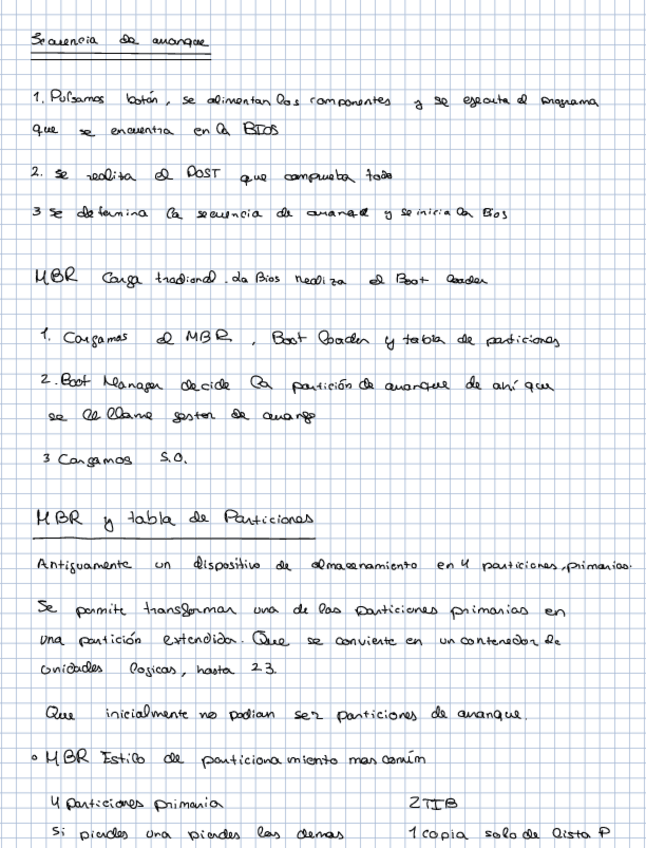 Secuencia de arranque
1. Pulsamos botón, se alimentan los componentes y se ejecuta el programa
que se encuentra en la BIOS
2. se realiza el POST que comprueba todo
3 se determina la secuencia de arranque y se inicia la Bios
MBR Carga tradional. La Bios realiza el Boot loader
1. Cargamos el MBR, Boot loader y tabla de particiones
2. Boot Manager decide la partición de arranque de ahí que
se le llame gestor de arranque
3 Cargamos S.O.
MBR y tabla de Particiones
Antiguamente un dispositivo de almacenamiento en 4 particiones, primarias.
Se permite transformar una de las particiones primarias en
una partición extendida. Que se convierte en un contenedor de
unidades logicas, hasta 23.
Que inicialmente no podian ser particiones de arranque.
• MBR Estilo de particiona miento mas común
4 particiones primaria 2TIB
Si pierdes una pierdes las demas 1 copia solo de lista P